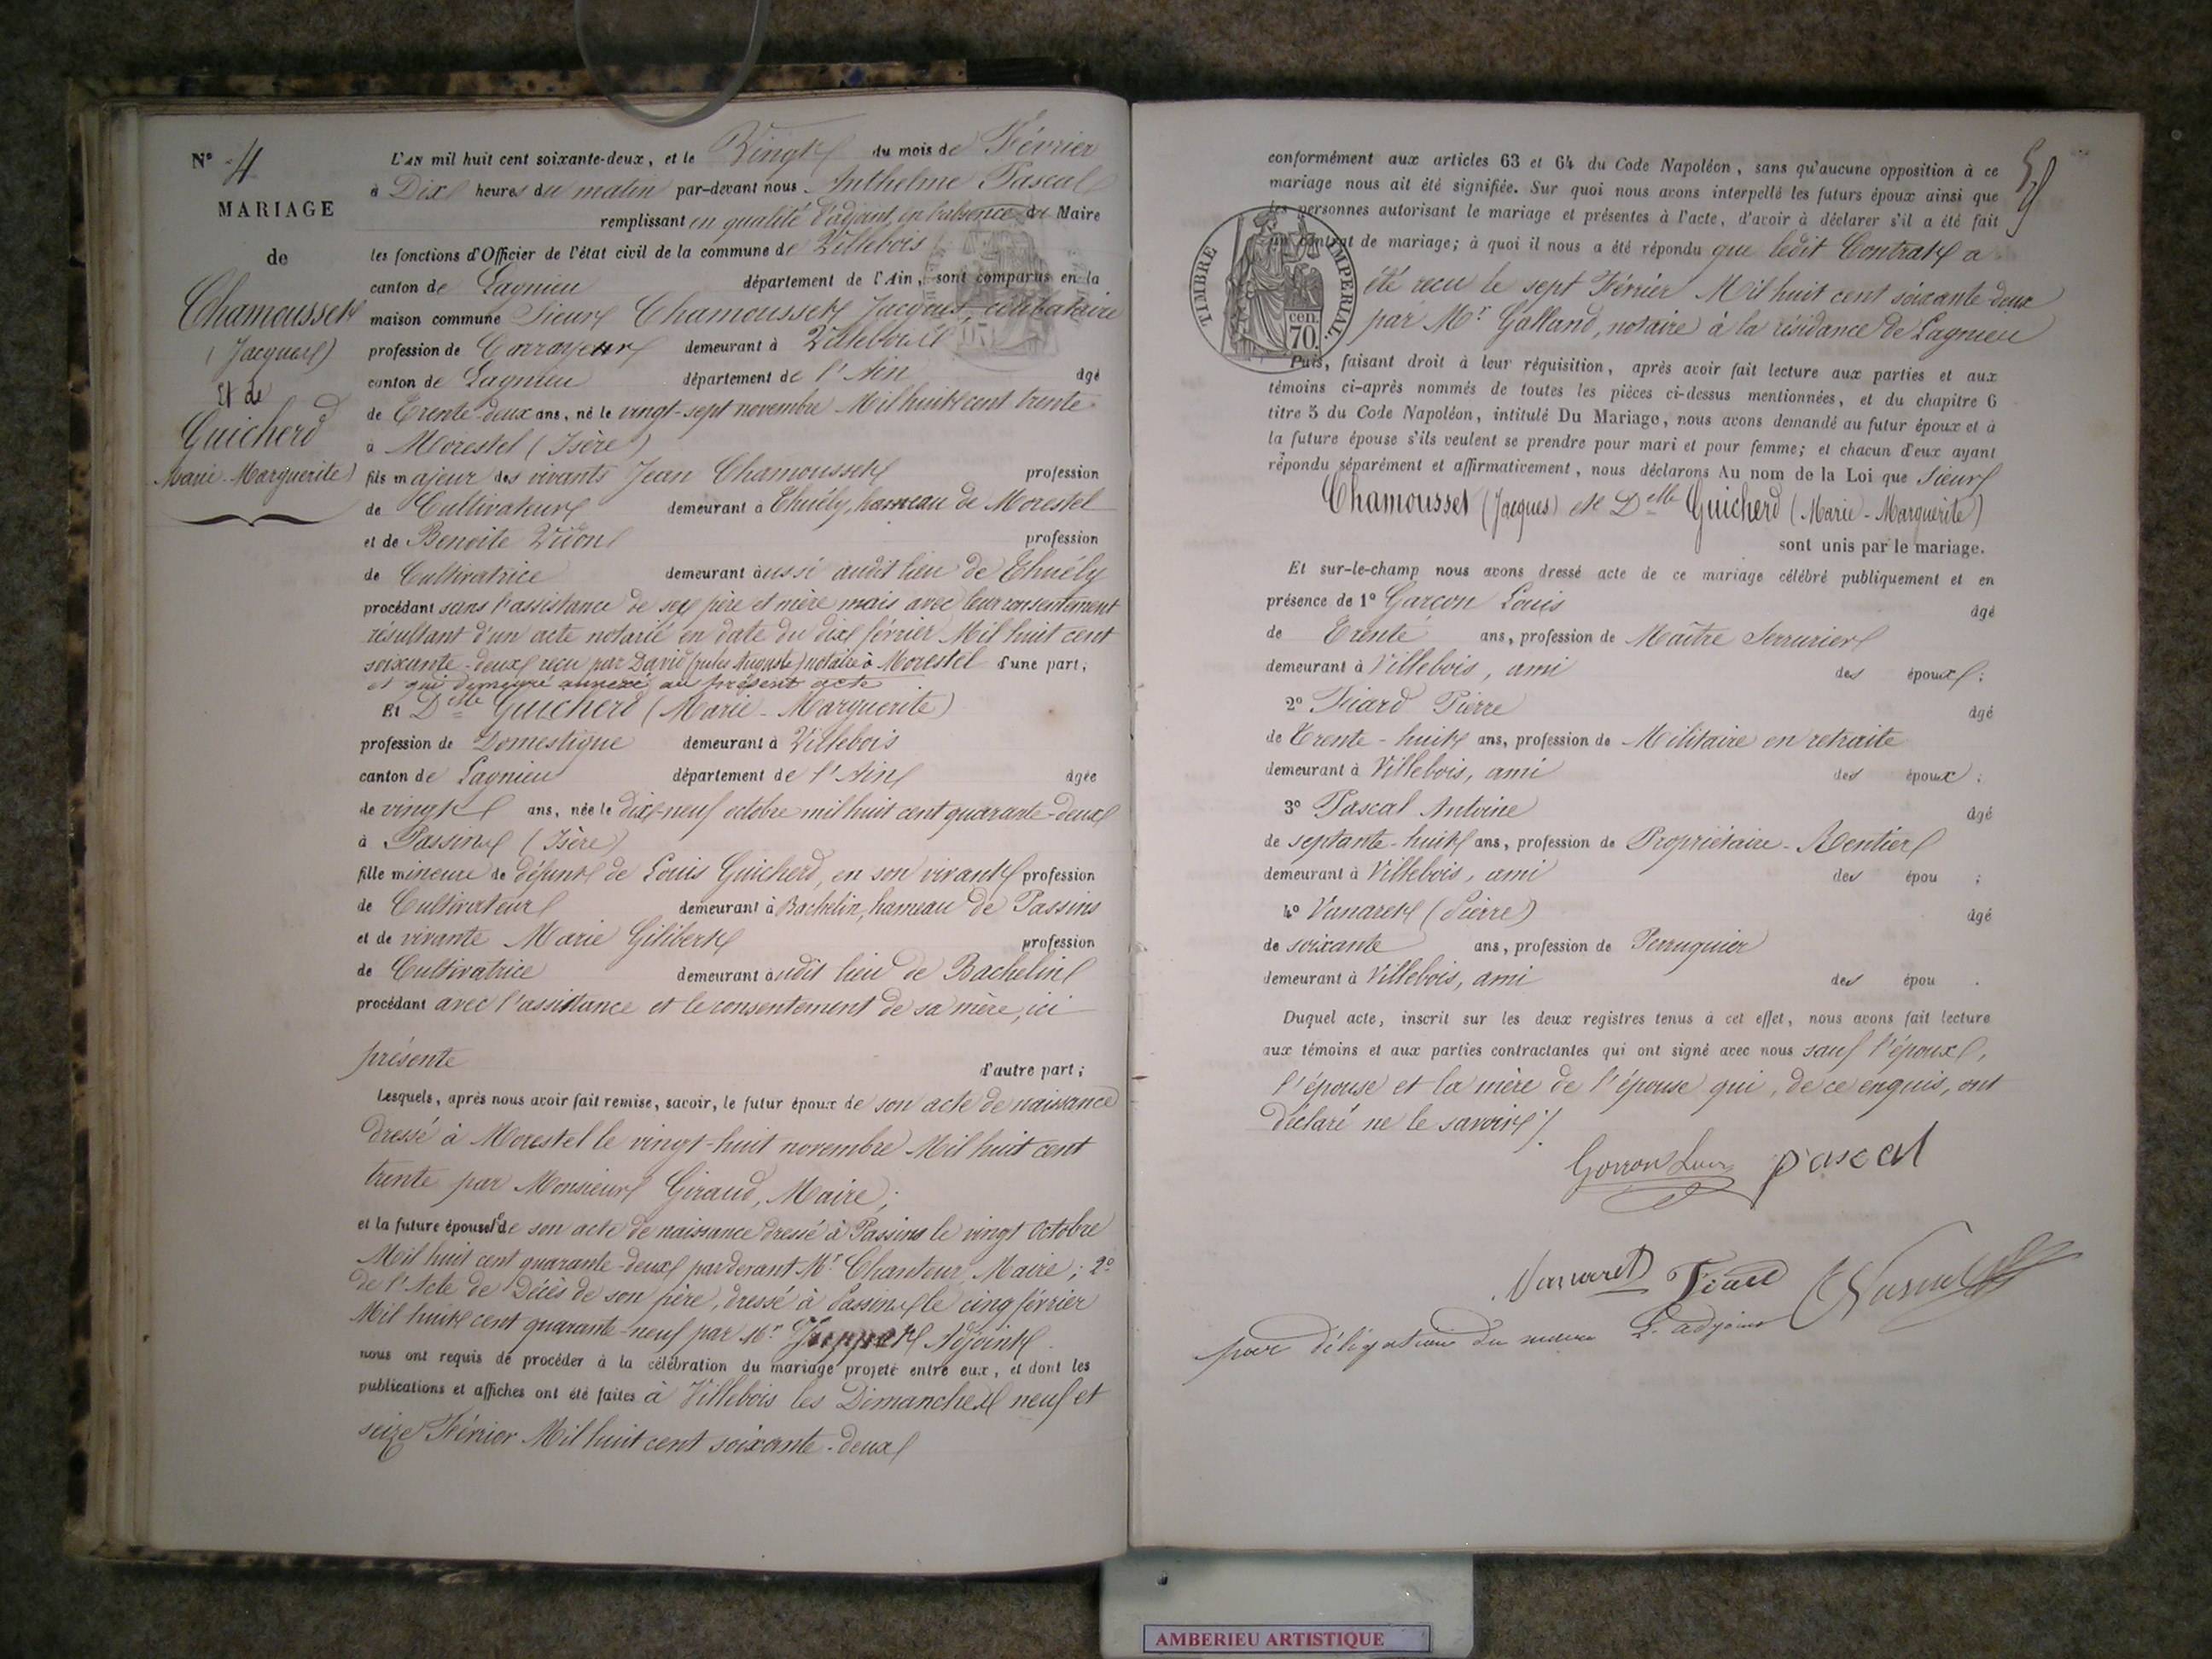 N° 4
MARIAGE
de
Chamousset
(Jacques)
Et de
Guicherd
Marie-Marguerite)
L'AN mil huit cent soixante-deux, et le Vingt du mois de Février
à Dix heures du matin par-devant nous Anthelme Pascal
remplissant en qualité d'adjoint, en l'absence du Maire
les fonctions d'Officier de l'état civil de la commune de Villebois
canton de Lagnieu département de l'Ain, sont comparus en la
maison commune Sieur Chamousset Jacques, célibataire
profession de Corroyeur demeurant à Villebois
canton de Lagnieu département de l'Ain âgé
de Trente-deux ans, né le vingt-sept novembre Mil huit cent trente
à Morestel (Isère)
fils majeur des vivants Jean Chamousset profession
de Cultivateur demeurant à Thuély, hameau de Morestel
et de Benoite profession
de Cultivatrice demeurant aussi audit lieu de Thuély
procédant sans l'assistance de ses père et mère mais avec leur consentement
résultant d'un acte notarié en date du dix février Mil huit cent
soixante-deux reçu par David (Jules Auguste) notaire à Morestel d'une part;
et qui demeuré annexé au présent acte
Et Delle Guicherd (Marie-Marguerite)
profession de Domestique demeurant à Villebois
canton de Lagnieu département de l'Ain âgée
de vingt ans, née le dix-neuf octobre mil huit cent quarante-deux
à Passins (Isère)
fille mineure de défunt de Louis Guicherd, en son vivant profession
de Cultivateur demeurant à Bachelin, hameau de Passins
et de vivante Marie Gilibert profession
de Cultivatrice demeurant audit lieu de Bachelin
procédant avec l'assistance et le consentement de sa mère, ici
présente d'autre part;
Lesquels, après nous avoir fait remise, savoir, le futur époux de son acte de naissance
dressé à Morestel le vingt-huit novembre Mil huit cent
trente par Monsieur Giraud, Maire;
et la future épouse 1° de son acte de naissance dressé à Passins le vingt Octobre
Mil huit cent quarante-deux pardevant Mr Chanteur, Maire; 2°
de l'Acte de Décès de son père, dressé à Passins le cinq février
Mil huit cent quarante-neuf par Mr Adjoint
nous ont requis de procéder à la célébration du mariage projeté entre eux, et dont les
publications et affiches ont été faites à Villebois les Dimanches neuf et
seize Février Mil huit cent soixante-deux
conformément aux articles 63 et 64 du Code Napoléon, sans qu'aucune opposition à ce
mariage nous ait été signifiée. Sur quoi nous avons interpellé les futurs époux ainsi que
les personnes autorisant le mariage et présentes à l'acte, d'avoir à déclarer s'il a été fait
un contrat de mariage; à quoi il nous a été répondu que ledit Contrat a
TIMBRE IMPERIAL.
cen.
70.
été reçu le sept Février Mil huit cent soixante-deux
par Mr Galland, notaire à la résidance de Lagnieu
Puis, faisant droit à leur réquisition, après avoir fait lecture aux parties et aux
témoins ci-après nommés de toutes les pièces ci-dessus mentionnées, et du chapitre 6
titre 5 du Code Napoléon, intitulé Du Mariage, nous avons demandé au futur époux et à
la future épouse s'ils veulent se prendre pour mari et pour femme; et chacun d'eux ayant
répondu séparément et affirmativement, nous déclarons Au nom de la Loi que Sieur
Chamousset (Jacques) et Delle Guicherd (Marie-Marguerite)
sont unis par le mariage.
Et sur-le-champ nous avons dressé acte de ce mariage célébré publiquement et en
présence de 1° Louis âgé
de Trente ans, profession de Maître Serrurier
demeurant à Villebois, ami des époux;
2° Pierre âgé
de Trente-huit ans, profession de Militaire en retraite
demeurant à Villebois, ami des époux;
3° Pascal Antoine âgé
de septante-huit ans, profession de Propriétaire-Rentier
demeurant à Villebois, ami des épou ;
4° Vanaret (Pierre) âgé
de soixante ans, profession de Perruquier
demeurant à Villebois, ami des épou .
Duquel acte, inscrit sur les deux registres tenus à cet effet, nous avons fait lecture
aux témoins et aux parties contractantes qui ont signé avec nous sauf l'époux,
l'épouse et la mère de l'épouse qui, de ce enquis, ont
déclaré ne le savoir
pascal
Vanaret
pour délégation du maire L'adjoint
AMBERIEU ARTISTIQUE